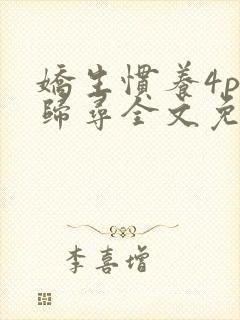 嬌生慣養4p
歸尋全文免
李喜增